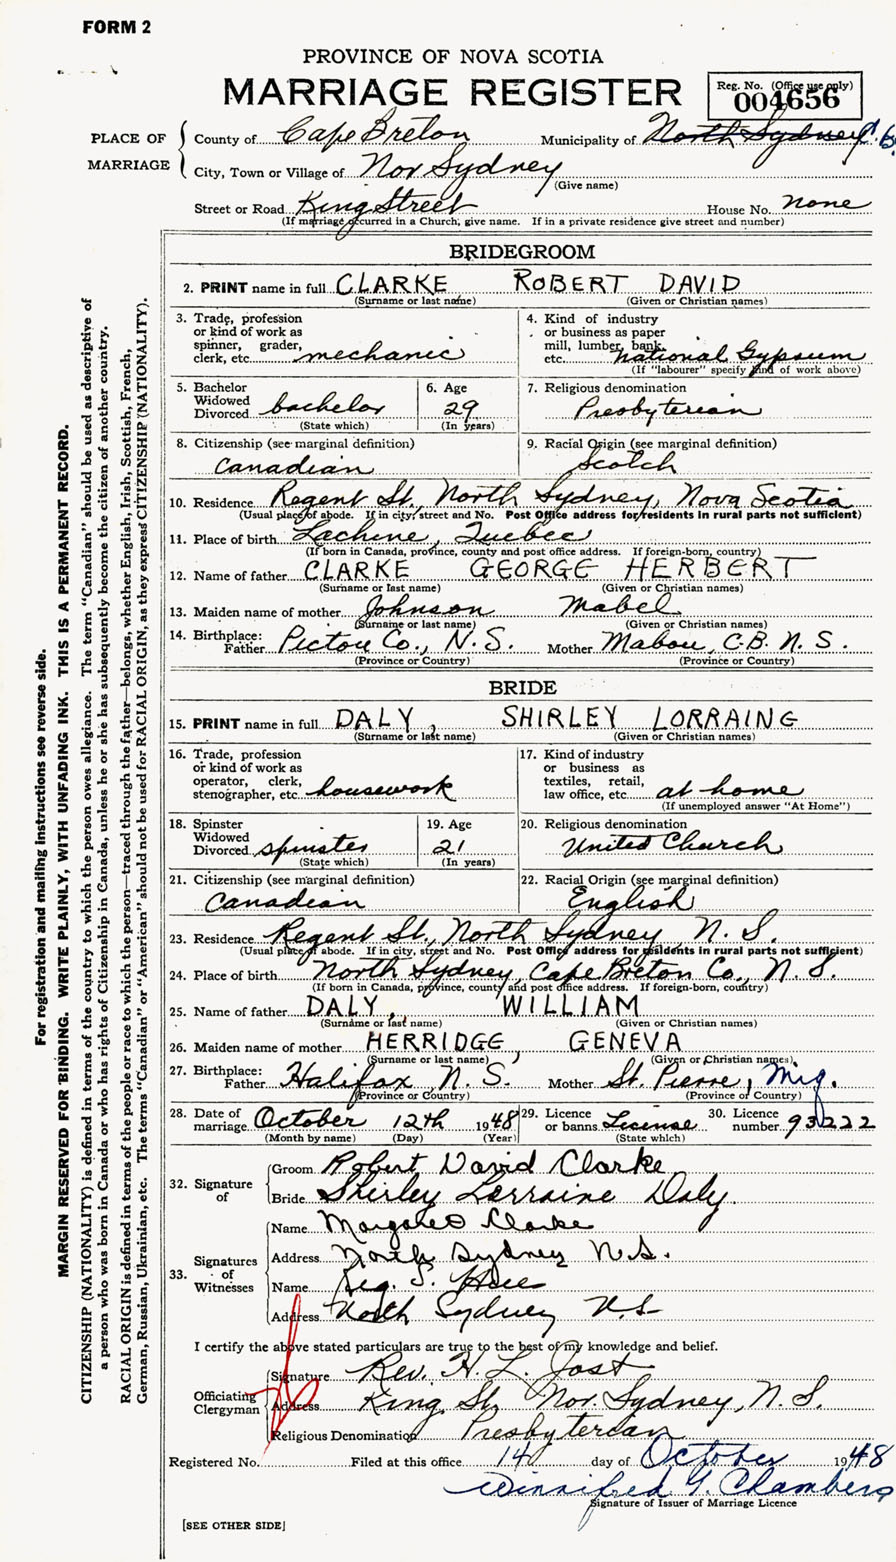 FORM 2
PROVINCE OF NOVA SCOTIA
MARRIAGE REGISTER
Reg. No. (Office use only)
004656
PLACE OF MARRIAGE
County of Cape Breton Municipality of North Sydney C.B.
City, Town or Village of Nor Sydney
(Give name)
Street or Road King Street House No. none
(If marriage occurred in a Church, give name. If in a private residence give street and number)
BRIDEGROOM
2. PRINT name in full CLARKE ROBERT DAVID
(Surname or last name) (Given or Christian names)
3. Trade, profession or kind of work as spinner, grader, clerk, etc. mechanic
4. Kind of industry or business as paper mill, lumber, bank, etc. National Gypsum
(If "labourer" specify kind of work above)
5. Bachelor Widowed Divorced bachelor
(State which)
6. Age 29
(In years)
7. Religious denomination Presbyterian
8. Citizenship (see marginal definition) Canadian
9. Racial Origin (see marginal definition) Scotch
10. Residence Regent St., North Sydney, Nova Scotia
(Usual place of abode. If in city, street and No. Post Office address for residents in rural parts not sufficient)
11. Place of birth Lachine, Quebec
(If born in Canada, province, county and post office address. If foreign-born, country)
12. Name of father CLARKE GEORGE HERBERT
(Surname or last name) (Given or Christian names)
13. Maiden name of mother Johnson Mabel
(Surname or last name) (Given or Christian names)
14. Birthplace: Father Pictou Co., N.S. Mother Mabou, C.B. N.S.
(Province or Country) (Province or Country)
BRIDE
15. PRINT name in full DALY, SHIRLEY LORRAINE
(Surname or last name) (Given or Christian names)
16. Trade, profession or kind of work as operator, clerk, stenographer, etc. housework
17. Kind of industry or business as textiles, retail, law office, etc. at home
(If unemployed answer "At Home")
18. Spinster Widowed Divorced spinster
(State which)
19. Age 21
(In years)
20. Religious denomination United Church
21. Citizenship (see marginal definition) Canadian
22. Racial Origin (see marginal definition) English
23. Residence Regent St., North Sydney N.S.
(Usual place of abode. If in city, street and No. Post Office address for residents in rural parts not sufficient)
24. Place of birth North Sydney, Cape Breton Co., N.S.
(If born in Canada, province, county and post office address. If foreign-born, country)
25. Name of father DALY, WILLIAM
(Surname or last name) (Given or Christian names)
26. Maiden name of mother HERRIDGE, GENEVA
(Surname or last name) (Given or Christian names)
27. Birthplace: Father Halifax, N.S. Mother St. Pierre, Miq.
(Province or Country) (Province or Country)
28. Date of marriage October 12th 1948
(Month by name) (Day) (Year)
29. Licence or banns License
(State which)
30. Licence number 93222
32. Signature of
Groom Robert David Clarke
Bride Shirley Lorraine Daly.
33. Signatures of Witnesses
Name Margaret Clarke
Address North Sydney N.S.
Name Reg. S.
Address North Sydney N.S.
I certify the above stated particulars are true to the best of my knowledge and belief.
Officiating Clergyman
Signature Rev. H. L. Jost
Address King St. Nor. Sydney, N.S.
Religious Denomination Presbyterian
Registered No. Filed at this office 14 day of October 1948
Winnifred G. Chambers
Signature of Issuer of Marriage Licence
[SEE OTHER SIDE]
For registration and mailing instructions see reverse side.
MARGIN RESERVED FOR BINDING. WRITE PLAINLY, WITH UNFADING INK. THIS IS A PERMANENT RECORD.
CITIZENSHIP (NATIONALITY) is defined in terms of the country to which the person owes allegiance. The term "Canadian" should be used as descriptive of
a person who was born in Canada or who has rights of Citizenship in Canada, unless he or she has subsequently become the citizen of another country.
RACIAL ORIGIN is defined in terms of the people or race to which the person—traced through the father—belongs, whether English, Irish, Scottish, French,
German, Russian, Ukrainian, etc. The terms "Canadian" or "American" should not be used for RACIAL ORIGIN, as they express CITIZENSHIP (NATIONALITY).